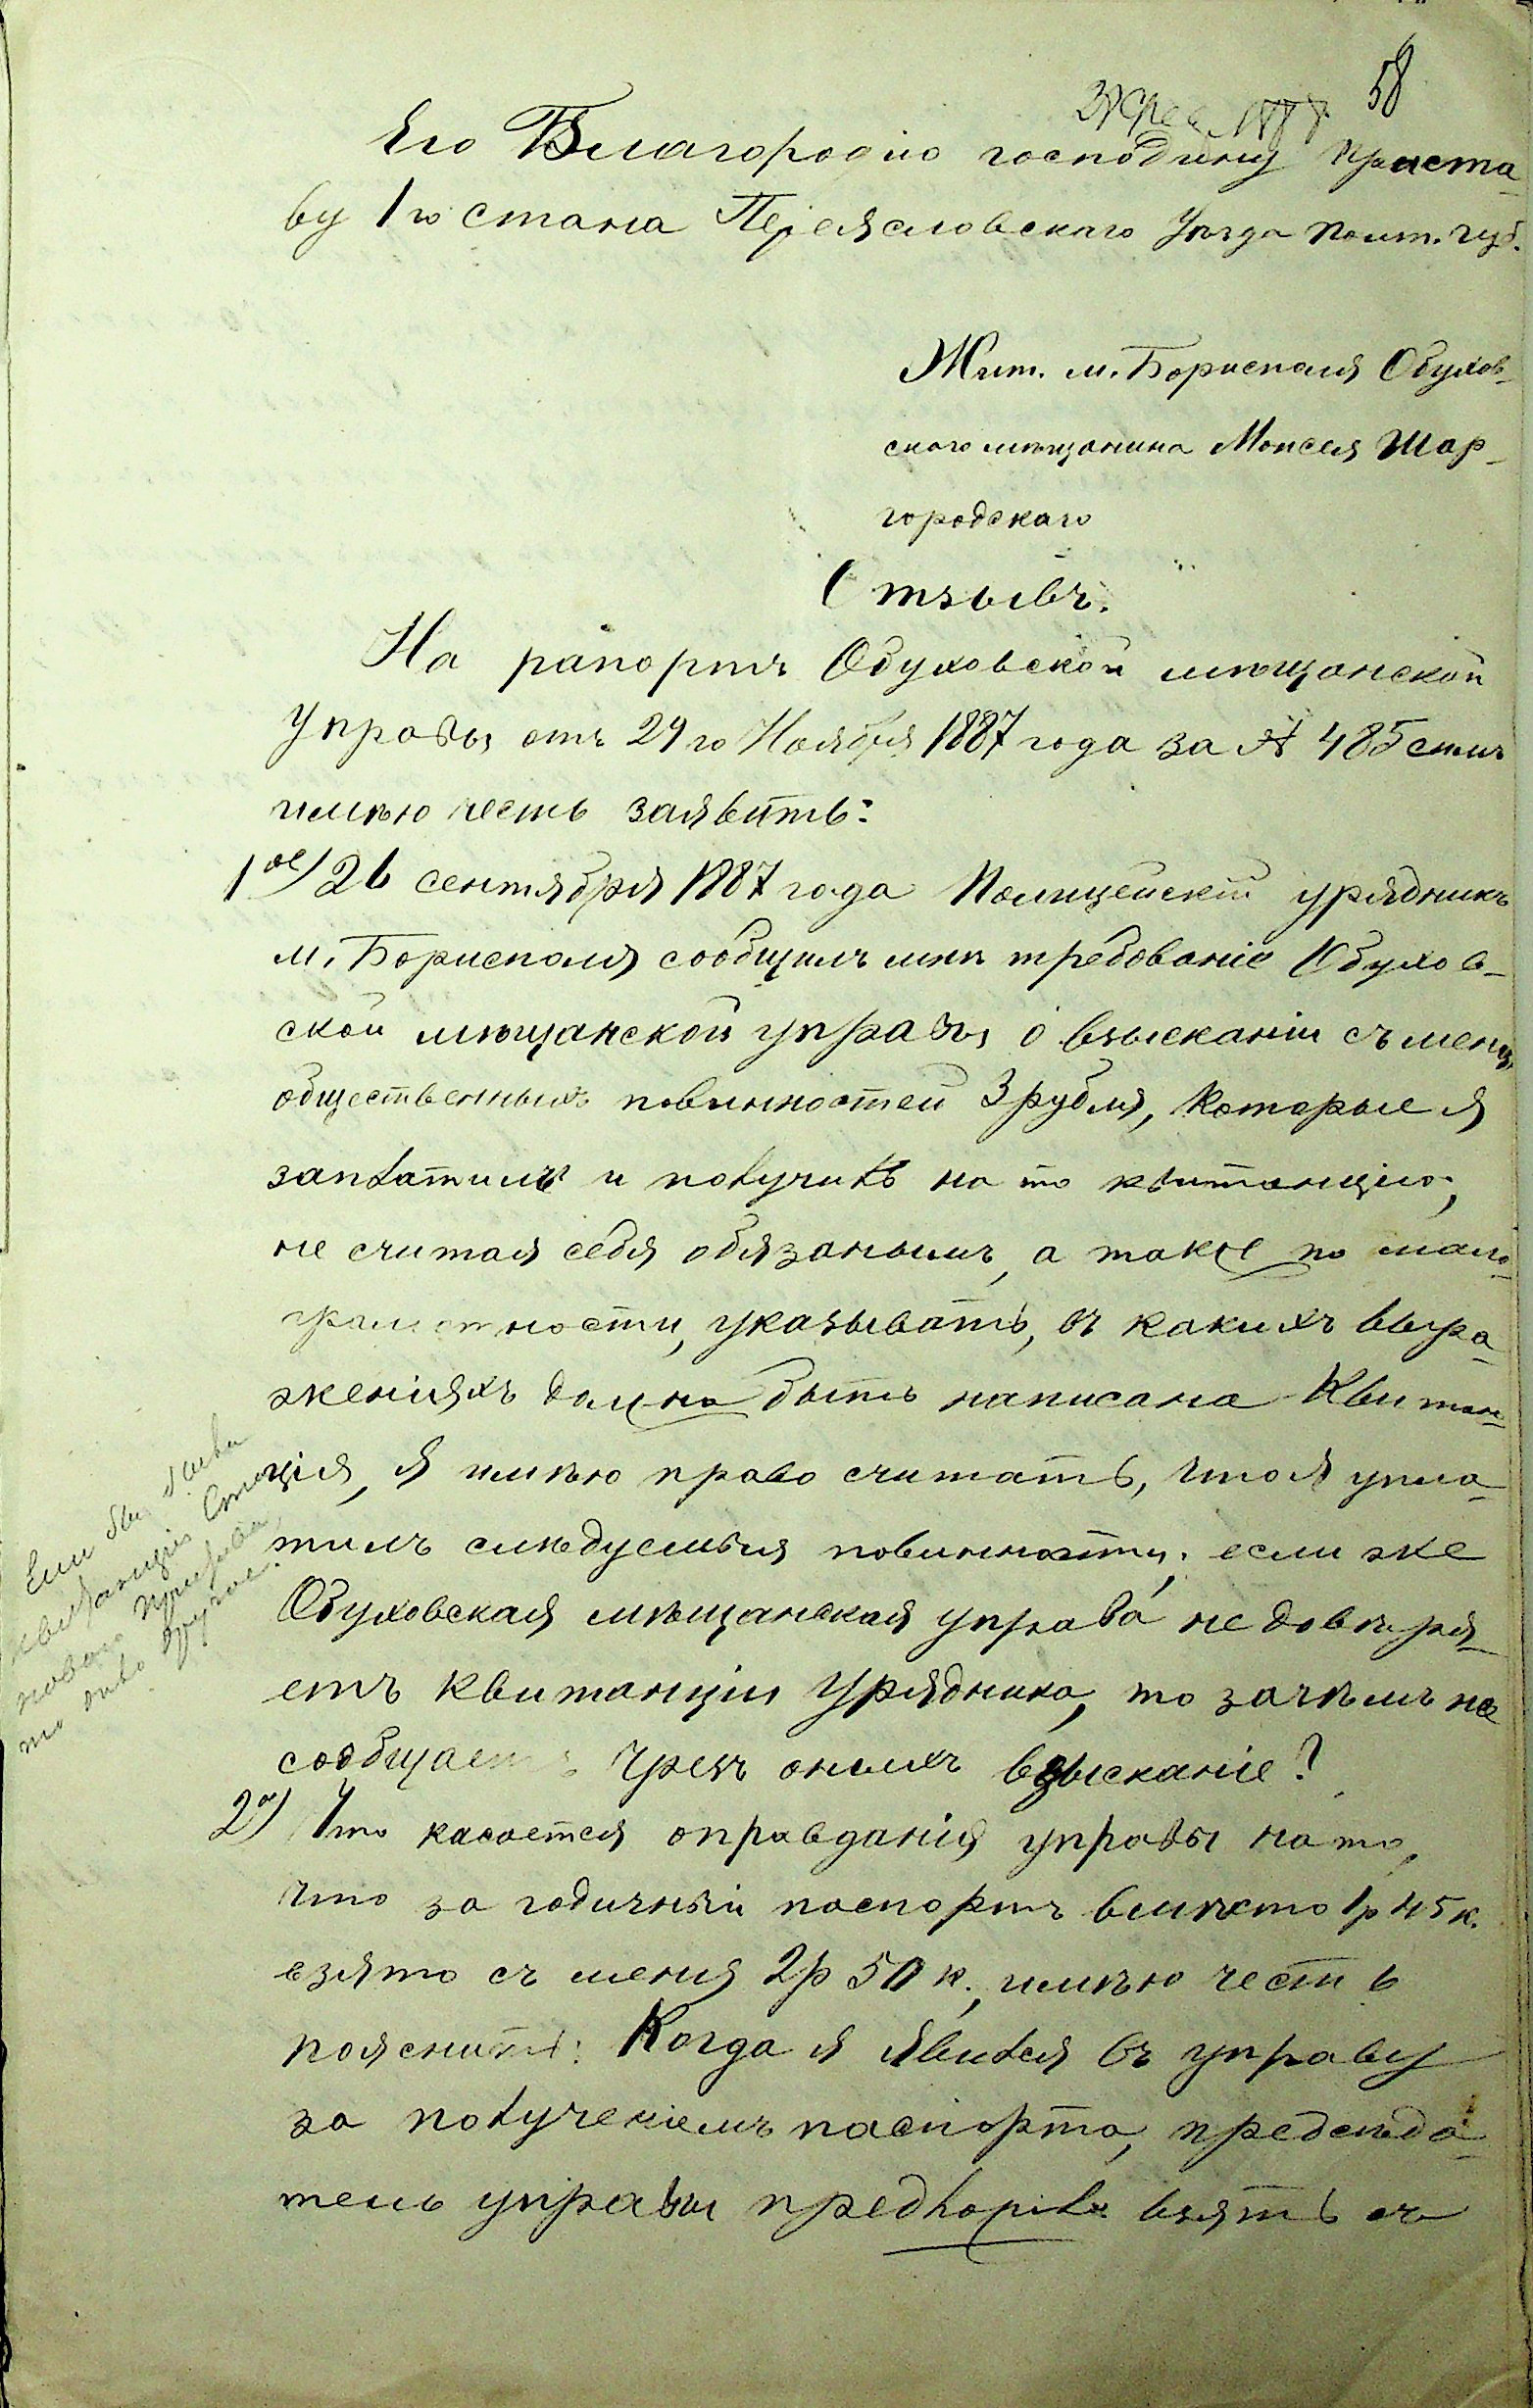 58
Его Благородію господину приста-
ву 1го стана Переясловскаго Уѣзда Полт. губ.
Жит. м. Борисполя Обухов-
ского мѣщанина Моисея Шар-
городскаго
Отзывъ.
На рапортъ Обуховской мѣщанской
Управы отъ 29го Ноября 1887 года за № 485 симъ
имѣю честь заявить:
1ое) 26 сентября 1887 года Полицейскій урядникъ
м. Борисполя сообщилъ мнѣ требованіе Обухов-
ской мѣщанской управы о взысканіи съ меня
общественныхъ повинностей 3 рубля, которые я
заплатилъ и получилъ на то квитанцію;
не считая себя обязанымъ, а также по мало-
грамотности, указывать, въ какихъ выра-
женіяхъ должна быть написана квитан-
ція, я имѣю право считать, что я упла-
тилъ слѣдуемыя повинности; если же
Обуховская мѣщанская управа не довѣря-
етъ квитанціи Урядника, то зачѣмъ не
сообщаетъ чрезъ оныхъ взысканіе?
Если бы была
квитанція Ста
новаго пристава,
то дѣло другое.
2о) Что касается оправданія управы на то,
что за годичный паспортъ вмѣсто 1р 45к.
взято съ меня 2р 50к., имѣю честь
пояснить: Когда я явился въ управу
за полученіемъ паспорта, предсѣда-
тель управы взять съ